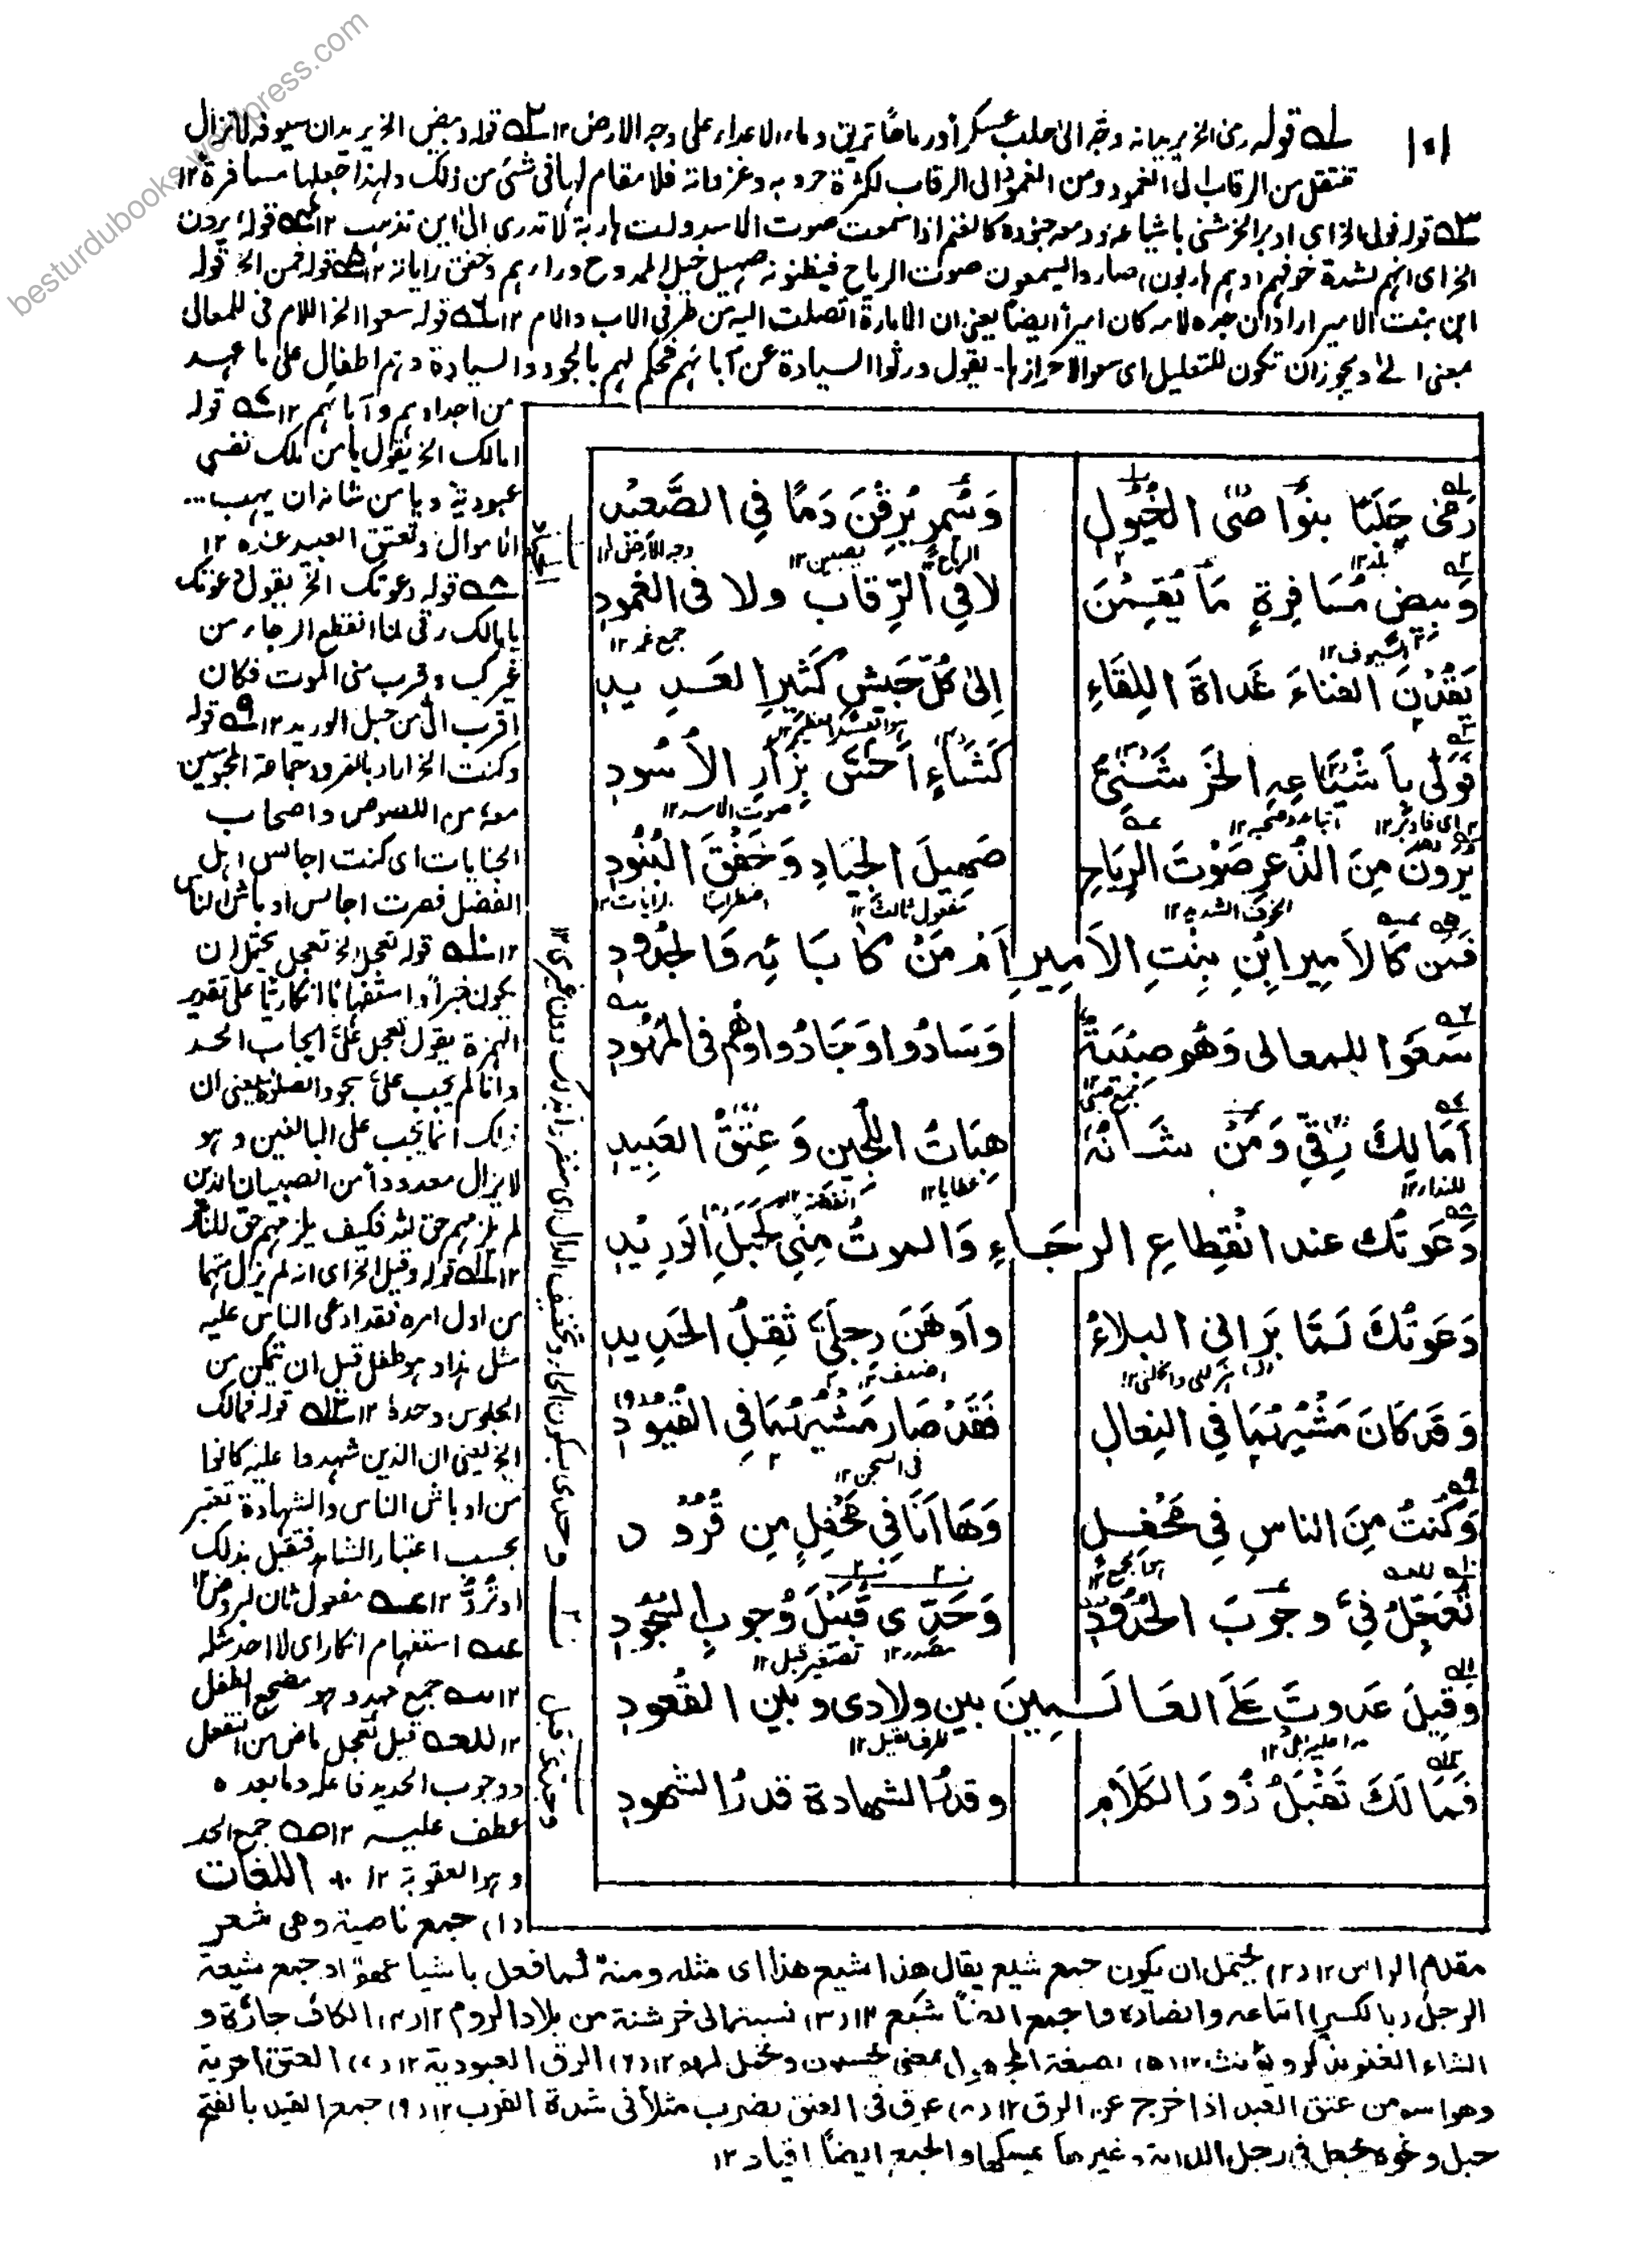 ١٠١
١ه قوله رمى الخ يريد انه وجّه الى حلب عسكراً ورماحًا تريق دماء الاعداء على وجه الارض ١٢ ٢ه قوله وبيض الخ يريد ان سيوفه لاتزال
تنتقل من الرقاب الى الغمود ومن الغمود الى الرقاب لكثرة حروبه وغزواته فلا مقام لها فى شئ من ذلك ولهذا جعلها مسافرة ١٢
٣ه قوله فولى الخ اى ادبر الخرشنى باشياعه ومعه جنوده كالغنم اذا سمعت صوت الاسد ولت هاربة لا تدرى الى اين تذهب ١٢ ٤ه قوله يرون
الخ اى انهم لشدة خوفهم وهم هاربون صاروا يسمعون صوت الرياح فيظنونه صهيل خيل الممدوح وراءهم وخفق راياته ١٢ ٥ه قوله فمن الخ قوله
ابن بنت الامير اراد ان جده لامه كان اميراً ايضاً يعنى ان الامارة اتصلت اليه من طرفى الاب والام ١٢ ٦ه قوله سعوا الخ اللام فى للمعالى
بمعنى الى ويجوز ان تكون للتعليل اى سعوا لاحرازها۔ يقول ورثوا السيادة عن آبائهم فحكم لهم بالجود والسيادة وهم اطفال على ما عهد
من اجدادهم وآبائهم ١٢ ٧ه قوله
امالك الخ يقول يا من ملك نفسى
عبودية ويا من شانه ان يهب...
الاموال وتعتق العبيد عنده ١٢
٨ه قوله دعوتك الخ يقول دعوتك
يا مالك رقى لما انقطع الرجاء من
غيرك وقرب منى الموت فكان
اقرب الىّ من حبل الوريد ١٢ ٩ه قوله
وكنت الخ اراد بالقرود جماعة المحبوسين
معه من اللصوص واصحاب
الجنايات اى كنت اجالس اهل
الفضل فصرت اجالس اوباش الناس
١٢ ١٠ه قوله تعجل الخ تعجل يحتمل ان
يكون خبراً واستفهامًا انكاريًا على تقدير
الهمزة يقول تعجل علىّ ايجاب الحد
وانا لم يجب علىّ سجود الصلوة يعنى ان
ذلك انما يجب على البالغين وهو
لا يزال معدوداً من الصبيان الذين
لم يلزمهم حق لله فكيف يلزمهم حق للناس
١٢ ١١ه قوله وقيل الخ اى انه لم يزل متهما
من اول امره فقد ادعى الناس عليه
مثل هذا وهو طفل قبل ان تمكن من
الجلوس وحدة ١٢ ١٢ه قوله فمالك
الخ يعنى ان الذين شهدوا عليه كانوا
من اوباش الناس والشهادة تعتبر
بحسب اعتبار الشاهد فتقبل بذلك
او تُردّ ١٢ عه مفعول ثان ليرون ١٢
عه استفهام انكار اى لا احد مثله
١٢ سه جمع مهد وهو مضجع الطفل
١٢ للعه قيل تعجل ماض من التفعل
ووجوب الحديد فاعله وما بعده
عطف عليه ١٢ صه جمع الحد
وهو العقوبة ١٢ اللغات
(١) جمع ناصية وهى شعر
رَمٰى حَلَبًا بنَوَاصِى الخُيُولِ
وَسُمرٍ يُرِقْنَ دَمًا فِي الصَّعيْدِ
بلد١٢
الرماح
يصببن١٢
وجه الارض١٢
وَبيضٍ مُسَافِرةٍ مَا يُقِمْنَ
لا فِي الرِّقاب ولا فى الغمودِ
السيوف١٢
جمع غمد١٢
يَقُدْنَ الفناءَ غَداةَ اللِقاءِ
اِلىٰ كُلّ جَيشٍ كَثيرِ العَدِيدِ
فَوَلّى بِاَشْيَاعِهِ الخَرشَنِيُّ
كَشَاءٍ اَحَسّ بِزَأرِ الاُسُودِ
اى فادبر١٢
اتباعه وصحبه١٢
صوت الاسد١٢
يَرَونَ مِنَ الذُعرِ صَوْتَ الرِيَاحِ
صَهِيلَ الجِيَادِ وَخَفْقَ البُنُودِ
الخوف الشديد١٢
مفعول ثالث١٢
اضطراب
رايات١٢
فمَن كَالاَميرِ ابْنِ بِنْتِ الاَمِيرِ اَمْ مَنْ كَاٰبَائِه وَالجُدُودِ
سَعَوا للمعالى وَهُم صِبْيَةٌ
وَسَادُوا وَجَادُوا وهُم فى المُهُودِ
جمع صبى
اَمَالِكَ رِقّي وَمَنْ شَانُهٗ
هِبَاتُ اللُّجَينِ وَعِتْقُ العَبِيدِ
للنداء١٢
عطايا١٢
الفضة١٢
دَعَوتُك عند انْقِطاعِ الرجَاءِ وَالموتُ مِنّي كحَبلِ الوَرِيْدِ
دَعَوتُكَ لَمّا بَرَانِى البلاءُ
واَوهَنَ رِجلَيَّ ثِقلُ الحَدِيدِ
اضعف١٢
وَقَد كَانَ مَشْيُهُمَا فِي النِعالِ
فَقَدْ صَارَ مَشْيُهُمَا فِي القُيُودِ
فى السجن١٢
وَكُنتُ مِنَ الناسِ فِي مَحْفِلٍ
وَهَا اَنَا فِي مَحْفِلٍ مِن قُرُودِ
تَعَجّلُ فِيَّ وجُوبَ الحُدُودِ
وَحَدِّى قُبَيْلَ وُجوبِ السُّجُودِ
مصدر١٢
تصغير قبل١٢
وَقِيلَ عَدَوتَ عَلَى العَالَمِينَ بين ولادى وبين القُعودِ
ظرف لقيل١٢
فَمَا لَكَ تَقْبَلُ زُورَ الكَلَامِ
وقدْرُ الشهادة قدرُ الشهودِ
مقدم الراس ١٢ (٢) يحتمل ان يكون جمع شيع يقال هذا شيع هذا اى مثله ومنه كما فعل باشياعهم او جمع شيعة
الرجل (بالكسر) اتباعه وانصاره واجمع ايضاً شيع ١٢ (٣) نسبة الى خرشنة من بلاد الروم ١٢ (٤) الكاف جارة و
الشاء الغنم يذكر ويؤنث ١٢ (٥) بصيغة المجهول بمعنى يحسبون ويخيل لهم ١٢ (٦) الرق العبودية ١٢ (٧) العتق الحرية
وهو اسم من عتق العبد اذا خرج عن الرق ١٢ (٨) عرق فى العنق يضرب مثلاً فى شدة القرب ١٢ (٩) جمع القيد بالفتح
حبل ونحوه يجعل فى رجل الدابة وغيرها يمسكها والجمع ايضاً اقياد ١٢
besturdubooks.wordpress.com